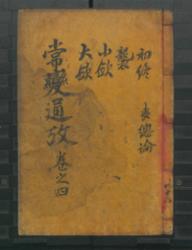 初終
襲
小斂
大斂
總論
常變通攷 卷之四